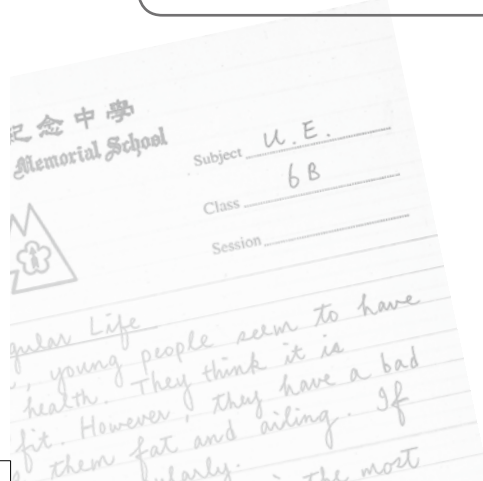 紀念中學
Memorial School
Subject U.E.
Class 6B
Session
gular Life
, young people seem to have
health. They think it is
fit. However, they have a bad
them fat and ailing. If
ularly.
in the most